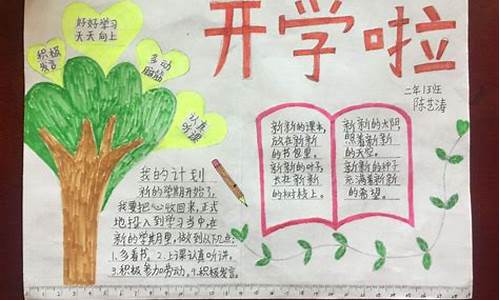 开学啦
二年13班
陈艺涛
好好学习
天天向上
积极
发言
多动
脑筋
认真
听课
我的计划
新的学期开始了,
我要把心收回来,正式
地投入到学习当中,在
新的学期里,做到以下几点:
1.多看书。2.上课认真听讲。
3.积极参加劳动。4.积极发言。
新新的课本,
放在新新
的书包里。
新新的叶子,
长在新新
的树枝上。
新新的太阳,
照着新新
的天空。
新新的种子
充满着新新
的希望。